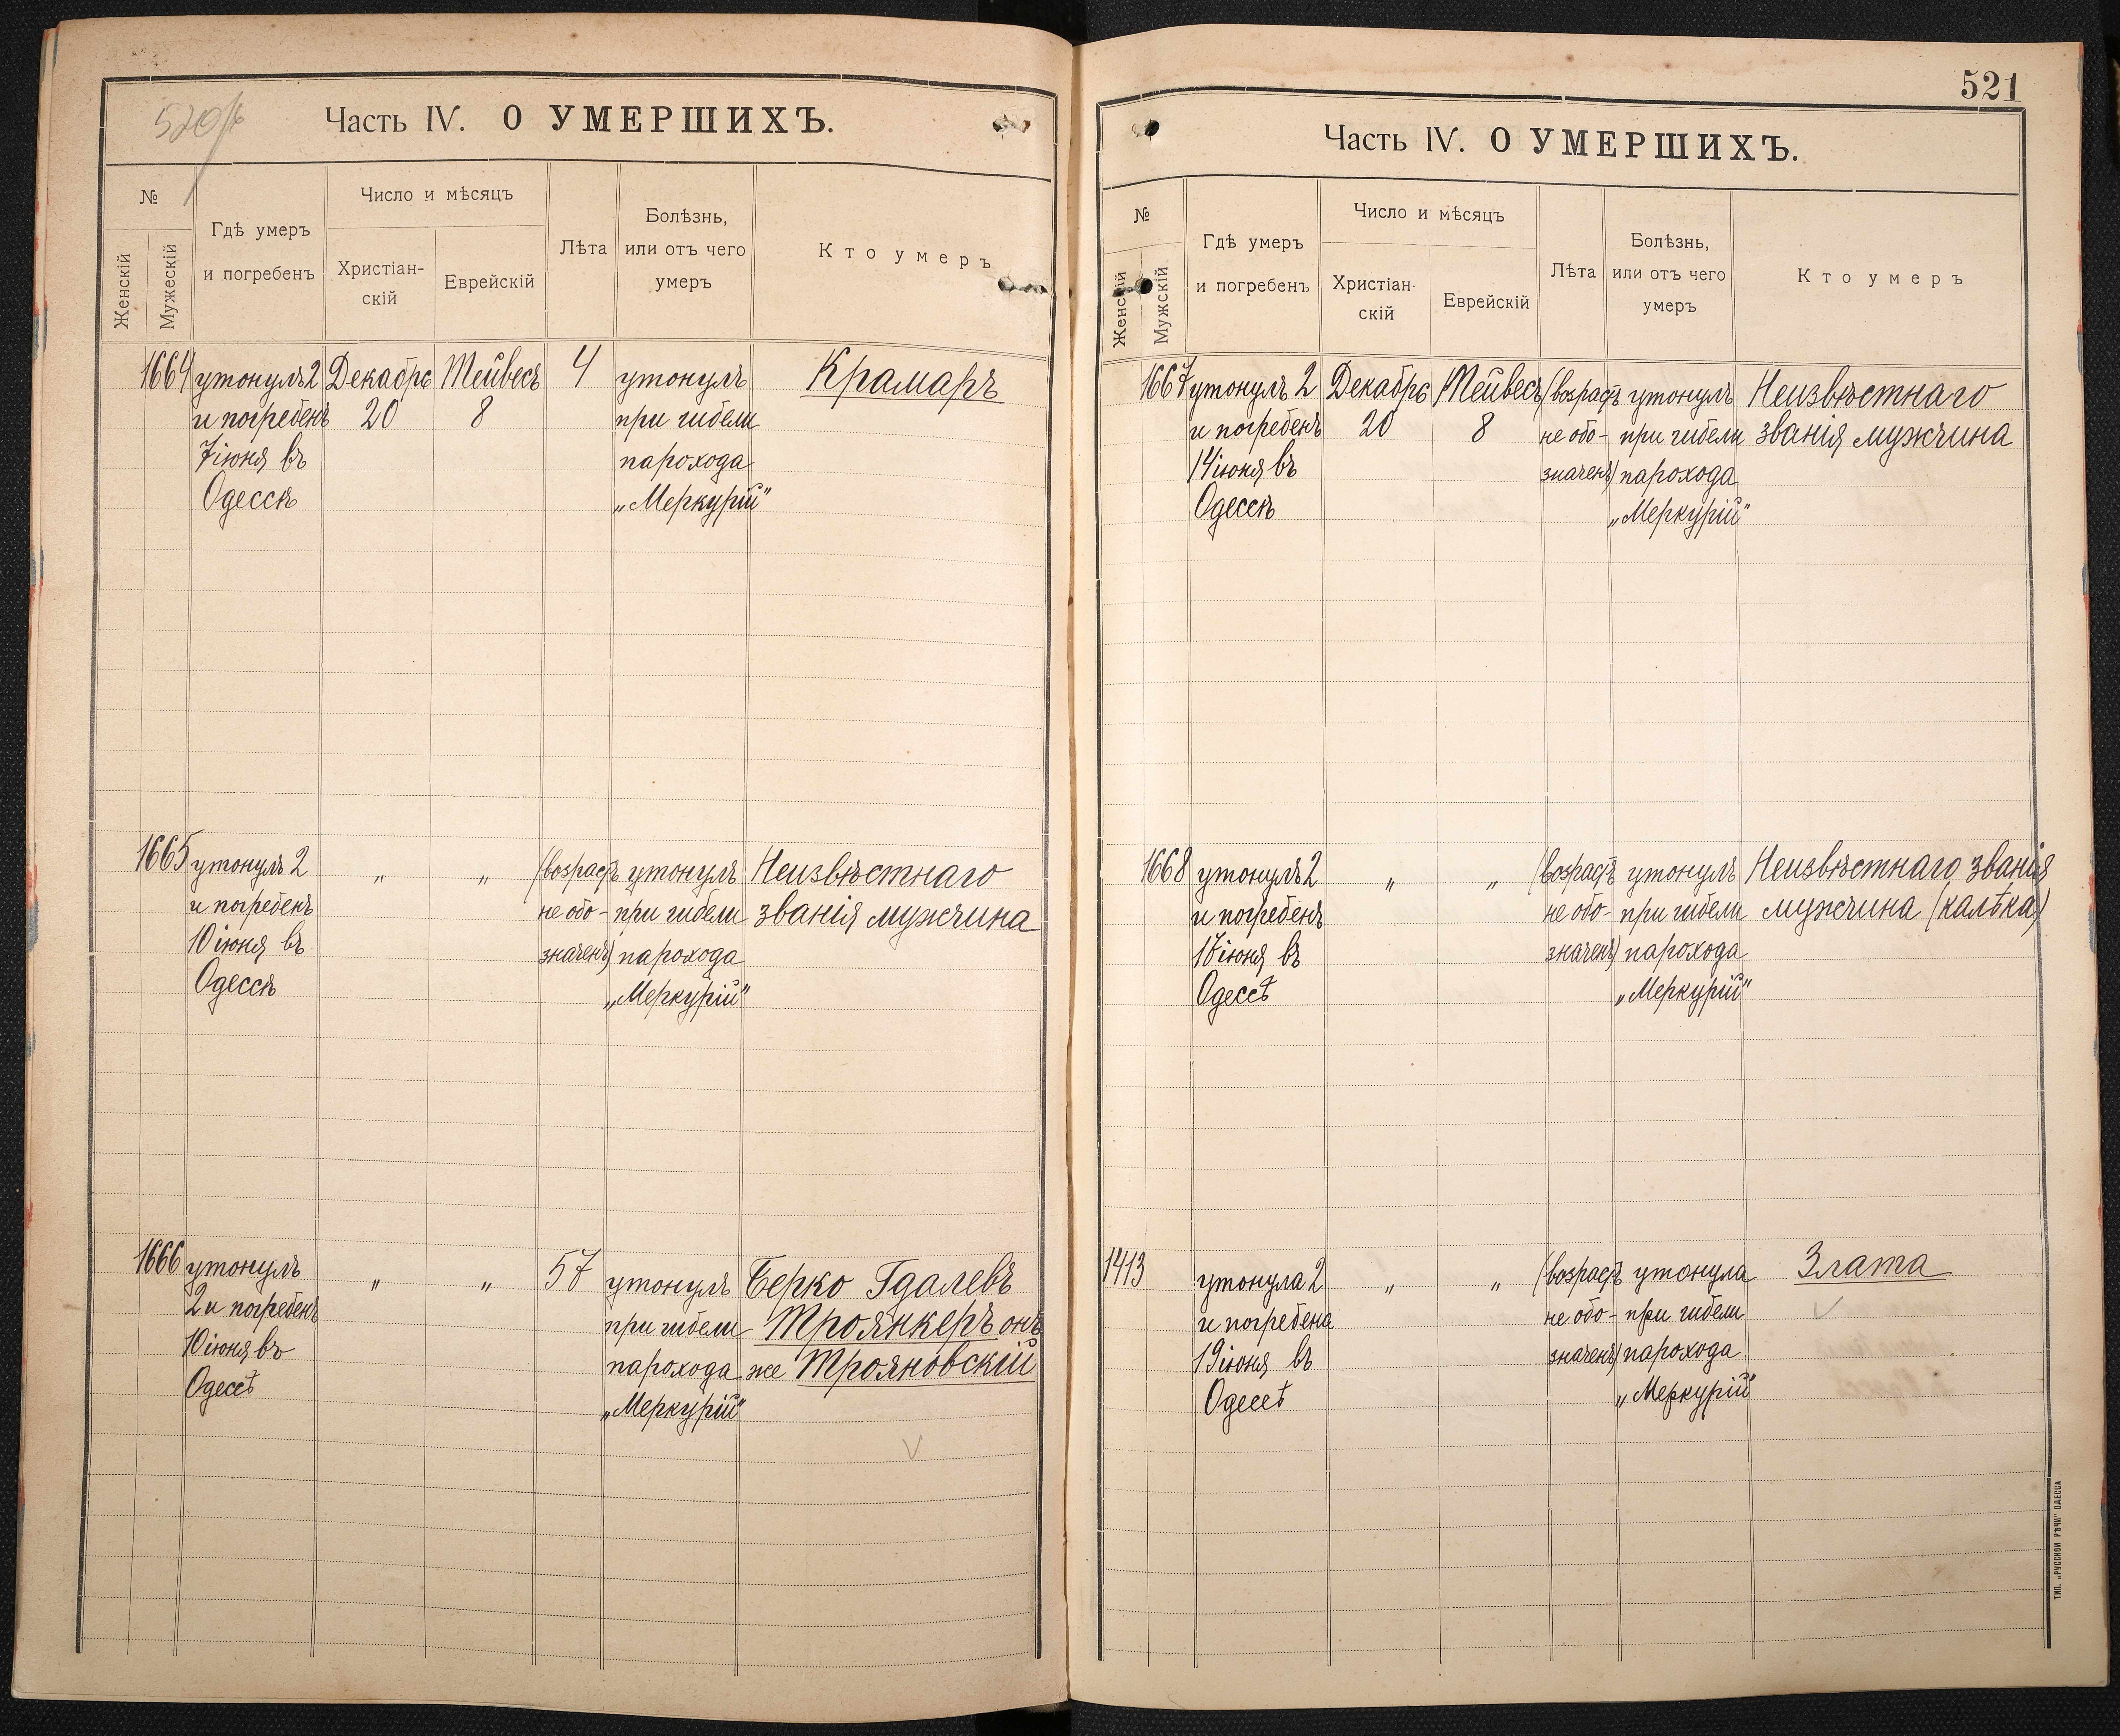 520/б
Часть IV. О УМЕРШИХЪ.
№
Женскій
Мужескій
Гдѣ умеръ
и погребенъ
Число и мѣсяцъ
Христіан-
скій
Еврейскій
Лѣта
Болѣзнь,
или отъ чего
умеръ
Кто умеръ
1664
утонулъ 2
и погребенъ
7 іюня въ
Одессѣ
Декабрь
20
Тейвесъ
8
4
утонулъ
при гибели
парохода
„Меркурій"
Крамаръ
1665
утонулъ 2
и погребенъ
10 іюня въ
Одессѣ
„
„
(возрастъ
не обо-
значенъ)
утонулъ
при гибели
парохода
„Меркурій"
Неизвѣстнаго
званія мужчина
1666
утонулъ
2 и погребенъ
10 іюня въ
Одессѣ
„
„
57
утонулъ
при гибели
парохода
„Меркурій"
Берко Гдалевъ
Троянкеръ онъ
же Трояновскій
521
Часть IV. О УМЕРШИХЪ.
№
Женскій
Мужскій
Гдѣ умеръ
и погребенъ
Число и мѣсяцъ
Христіан-
скій
Еврейскій
Лѣта
Болѣзнь,
или отъ чего
умеръ
Кто умеръ
1667
утонулъ 2
и погребенъ
14 іюня въ
Одессѣ
Декабрь
20
Тейвесъ
8
(возрастъ
не обо-
значенъ)
утонулъ
при гибели
парохода
„Меркурій"
Неизвѣстнаго
званія мужчина
1668
утонулъ 2
и погребенъ
17 іюня въ
Одессѣ
„
„
(возрастъ
не обо-
значенъ)
утонулъ
при гибели
парохода
„Меркурій"
Неизвѣстнаго званія
мужчина (калѣка)
1413
утонула 2
и погребена
19 іюня въ
Одессѣ
„
„
(возрастъ
не обо-
значенъ)
утонула
при гибели
парохода
„Меркурій"
Злата
ТИП. „РУССКОЙ РѢЧИ" ОДЕССА